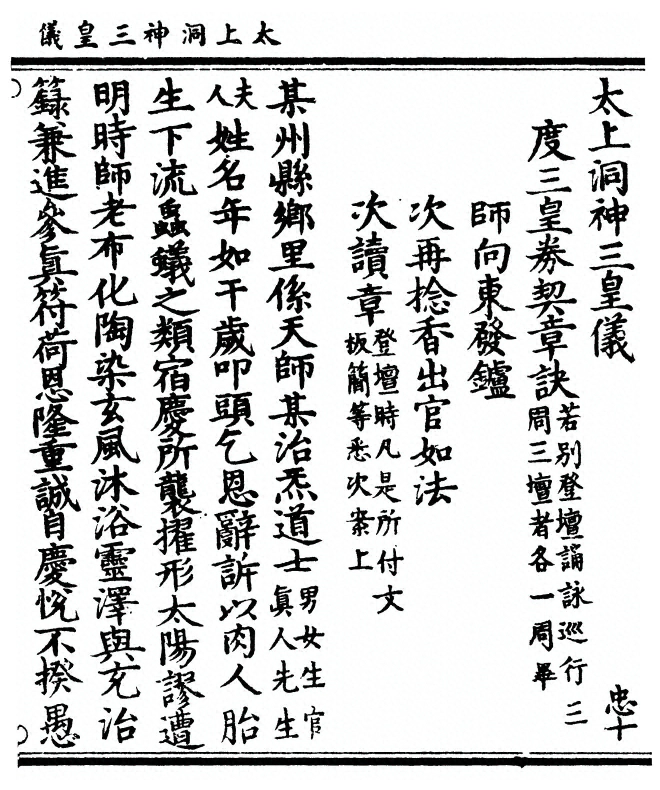 太上洞神三皇儀
太上洞神三皇儀
忠十
度三皇券契章訣若別登壇誦詠巡行三周三壇者各一周畢
師向東發鑪
次再捻香出官如法
次讀章登壇時凡是所付文板簡等悉次案上
某州縣鄉里係天師某治炁道士男女生官真人先生
夫人姓名年如干歲叩頭乞恩辭訴以肉人胎
生下流蟲蟻之類宿慶所襲擢形太陽謬遭
明時師老布化陶染玄風沐浴靈澤與充治
籙兼進參真符荷恩隆重誠自慶悅不揆愚